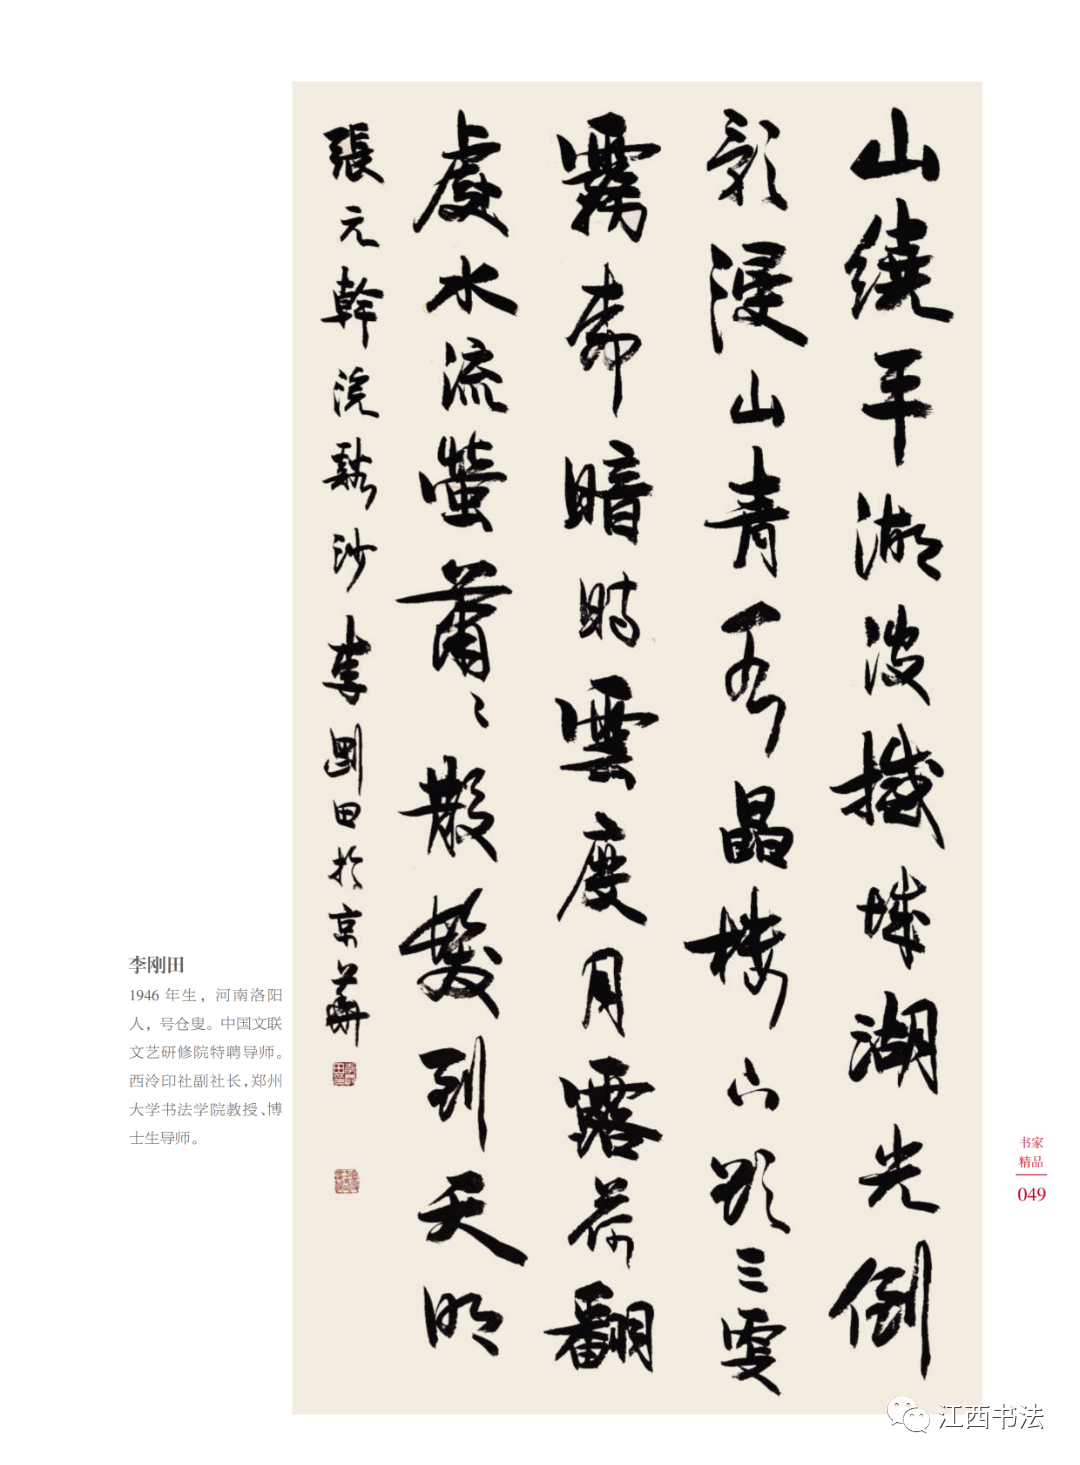 山繞平湖波撼城湖光倒
影浸山青水晶樓下欲三更
霧柳暗時雲度月露荷翻
處水流螢蕭〻散髮到天明
張元幹浣谿沙李剛田於京華
李刚田
1946 年生，河南洛阳
人，号仓叟。中国文联
文艺研修院特聘导师。
西泠印社副社长，郑州
大学书法学院教授、博
士生导师。
书家
精品
049
江西书法